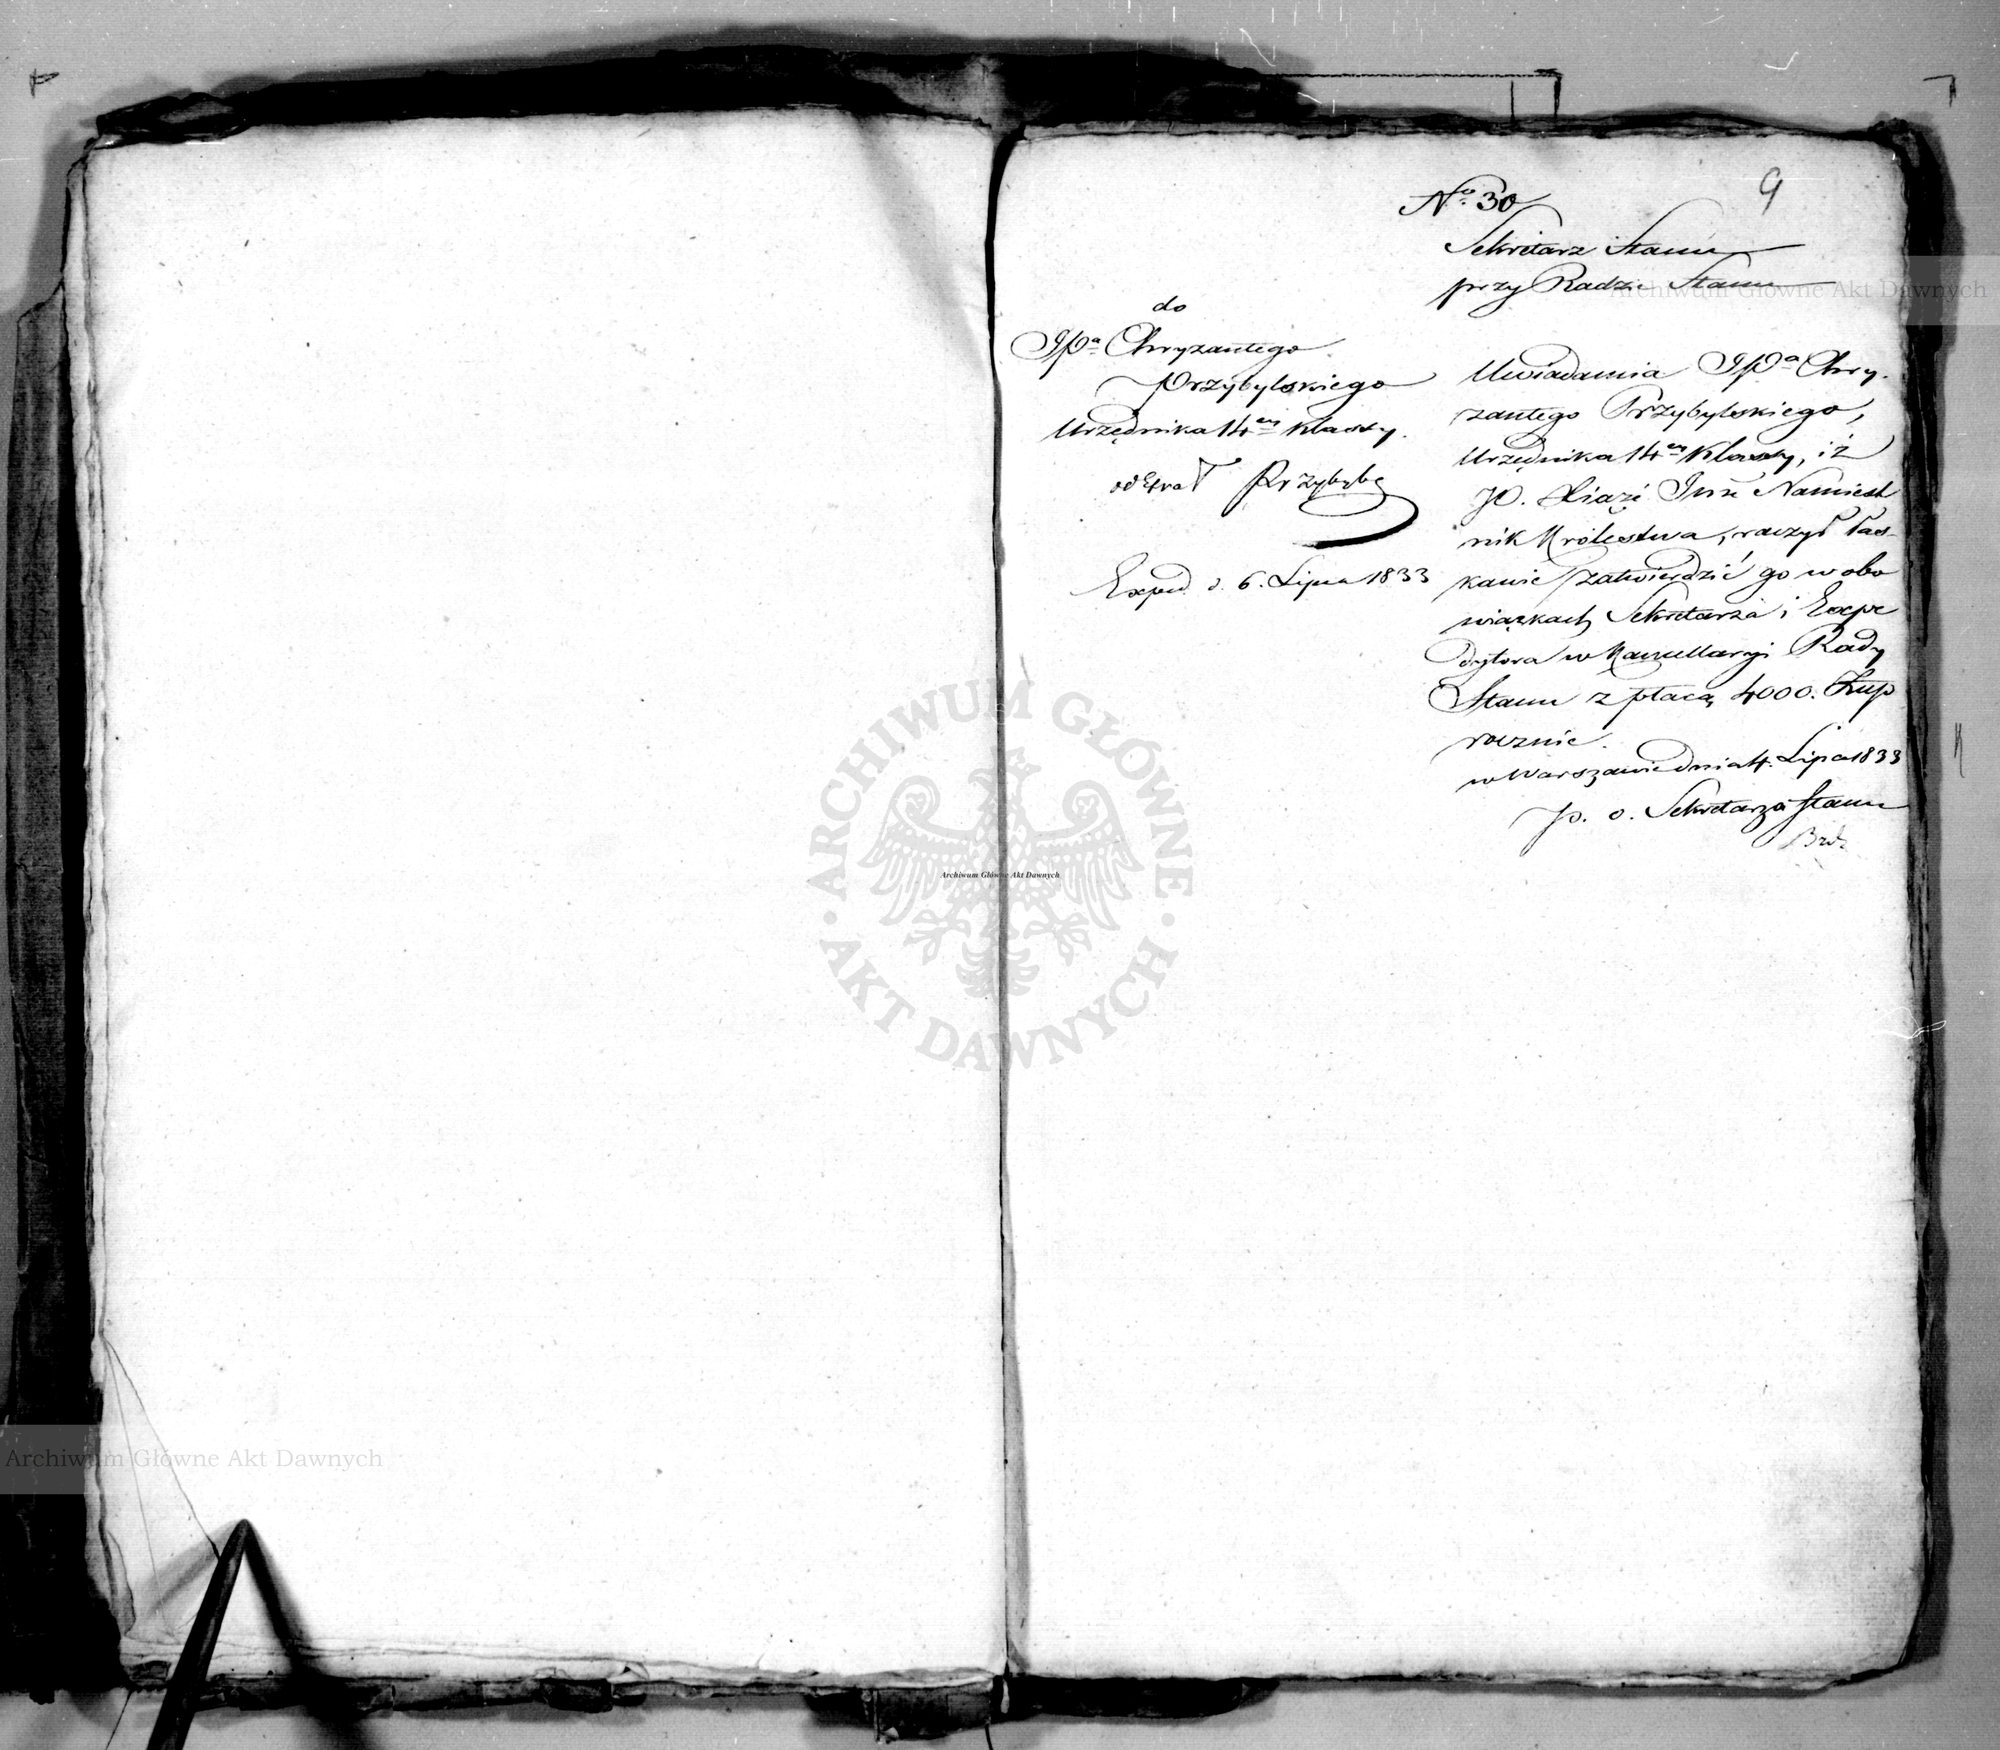 9
No. 30
Sekretarz Stanu
przy Radzie Stanu
do
JPa Chryzantego
Przybylskiego
Urzędnika 14ej Klassy.
odebrał Przybyls
Exped. d. 6. Lipca 1833
Uwiadamia JPa Chry-
zantego Przybylskiego,
Urzędnika 14ej Klassy, iż
JO. Xiążę Namiest
nik Królestwa, raczył łas-
kawie zatwierdzić go w obo
wiązkach Sekretarza i Expe
dytora w Kancellaryi Rady
Stanu z płacą 4000. Złtp
rocznie.
w Warszawie dnia 4. Lipca 1833
p. o. Sekretarza Stanu
Archiwum Główne Akt Dawnych
ARCHIWUM GŁÓWNE
AKT DAWNYCH
Archiwum Główne Akt Dawnych
Archiwum Główne Akt Dawnych